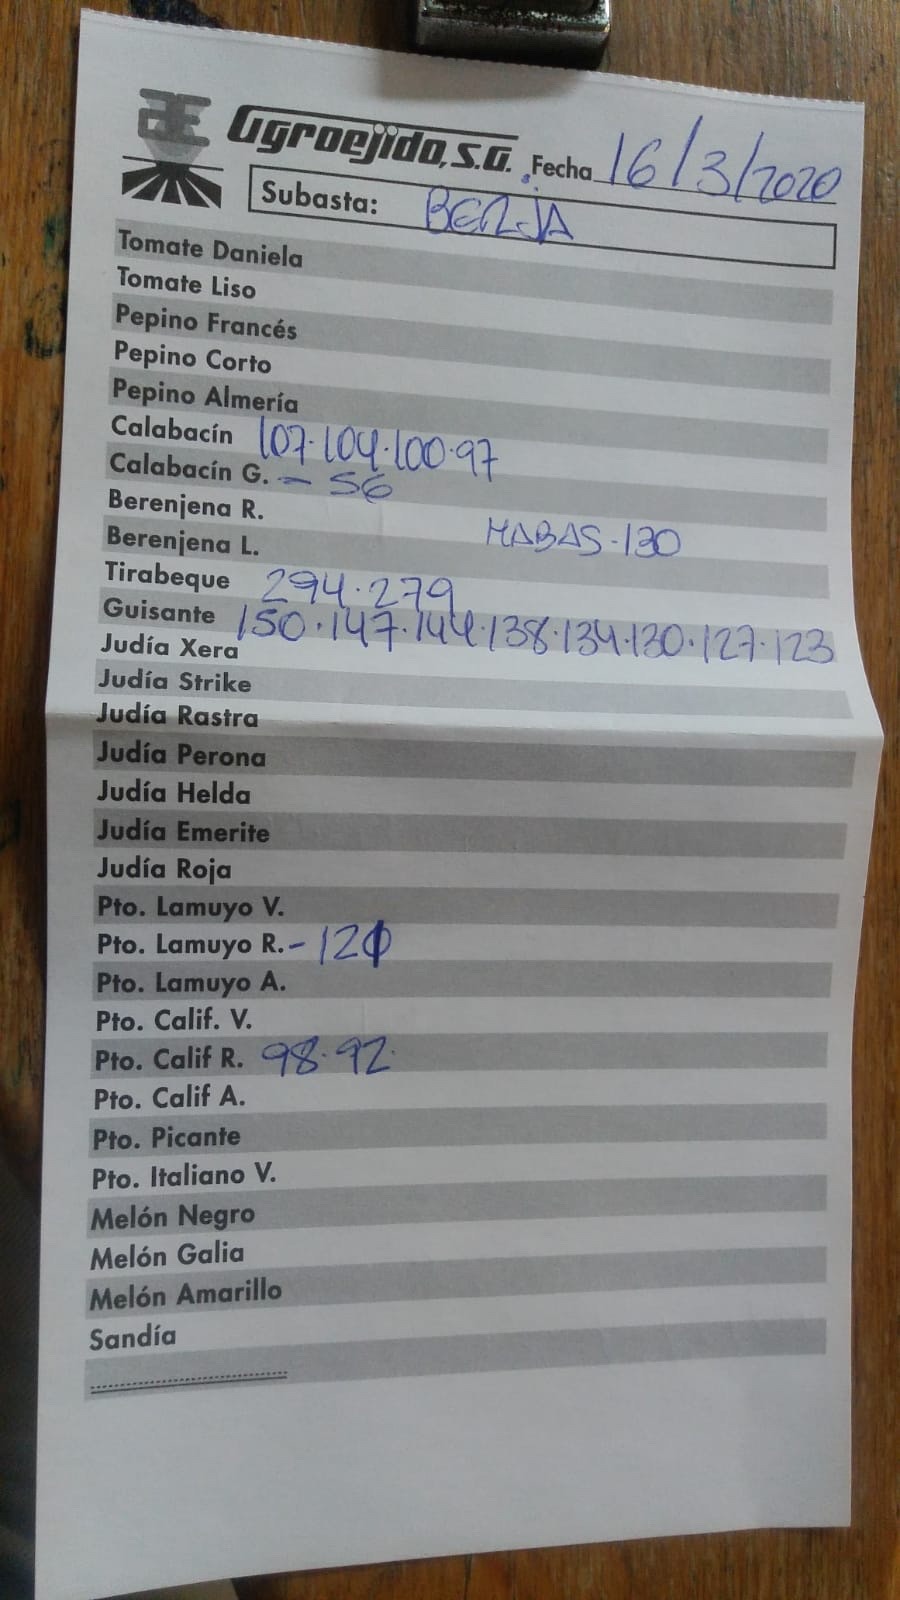 AE Agroejido, S.A. Fecha 16/3/2020
Subasta: BERJA
Tomate Daniela
Tomate Liso
Pepino Francés
Pepino Corto
Pepino Almería
Calabacín 107.104.100.97
Calabacín G. - 56
Berenjena R.
HABAS-130
Berenjena L.
Tirabeque 294.279
Guisante 150.147.144.138.134.130.127.123
Judía Xera
Judía Strike
Judía Rastra
Judía Perona
Judía Helda
Judía Emerite
Judía Roja
Pto. Lamuyo V.
Pto. Lamuyo R. - 120
Pto. Lamuyo A.
Pto. Calif. V.
Pto. Calif R. 98.92
Pto. Calif A.
Pto. Picante
Pto. Italiano V.
Melón Negro
Melón Galia
Melón Amarillo
Sandía